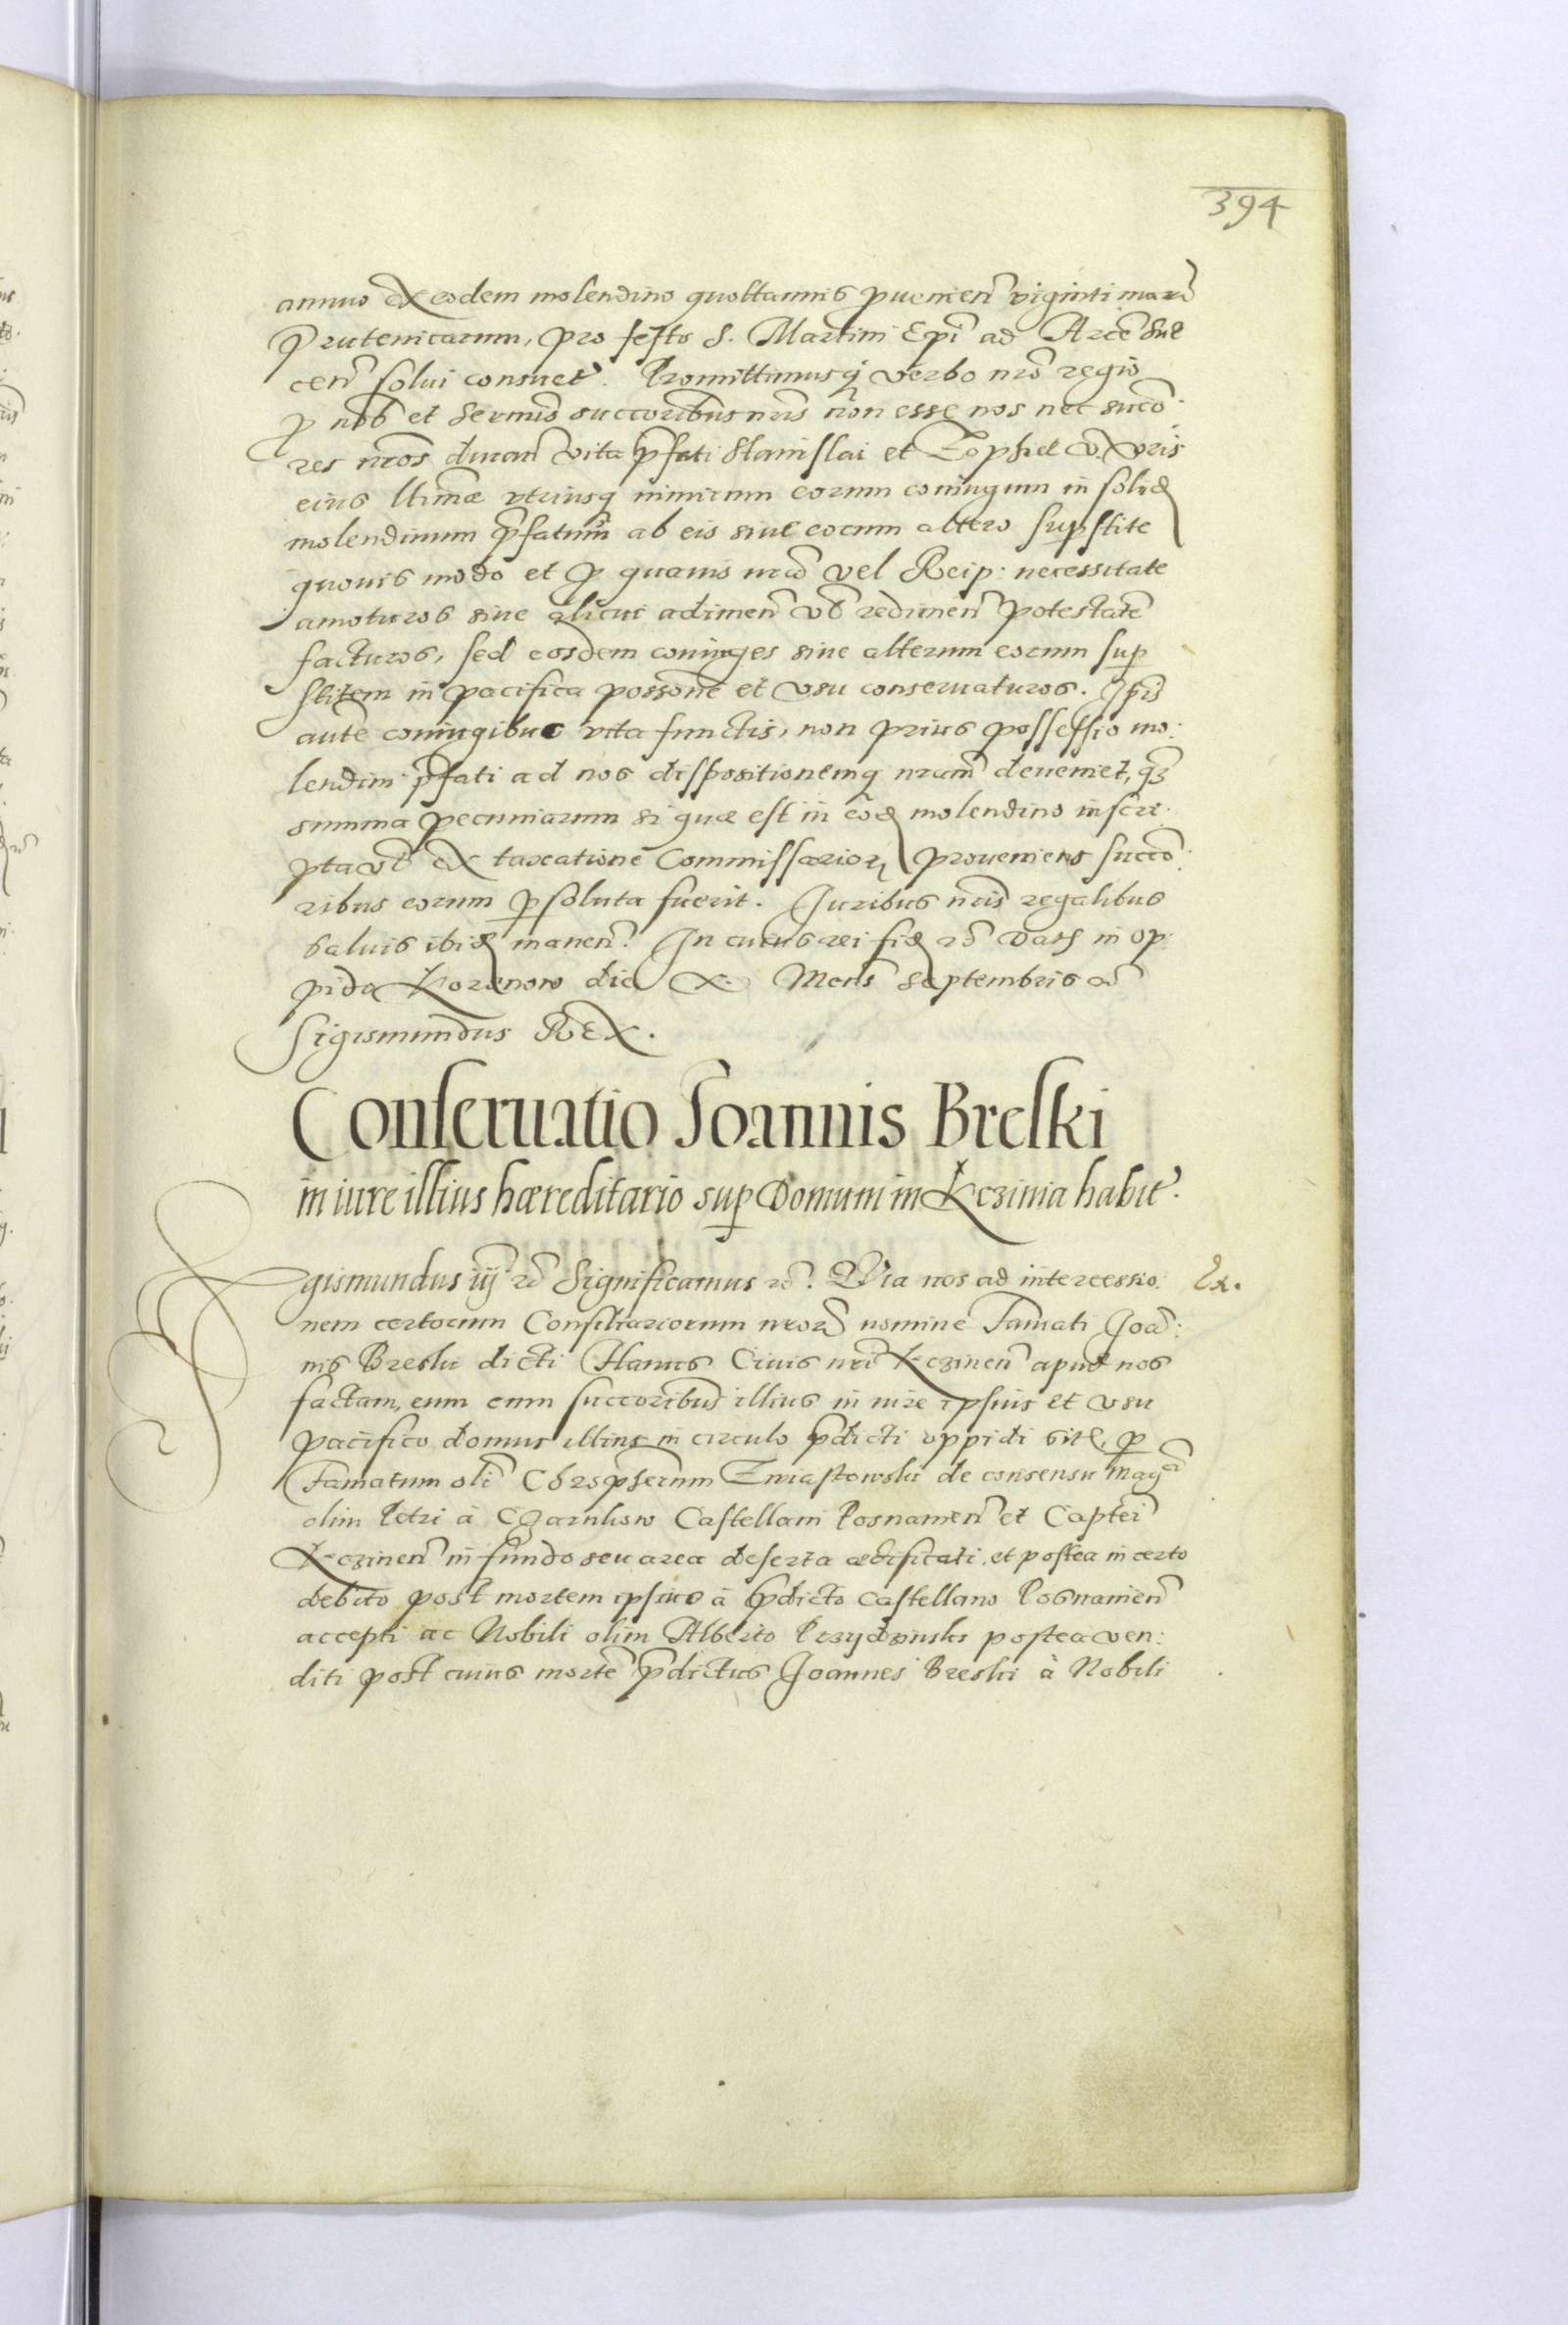 394
annuo ex eodem molendino quottannis ꝓuenien̄ viginti mar͠
Prutenicarum, pro festo S. Martini Ep̄i ad Arcē Sue
cen̄ solui consuet͠. Promittimusq́ verbo nr̄o regio
ꝓ nob̄ et Serm̄is succoribus nr̄is non esse nos nec succō:
res nr̄os duran̄ vita p̄fati Stanislai et Zophiæ vxoris
eius ltimæ vtriusq́ nimirum eorum coniugum in solid
molendinum p̄fatum ab eis siue eorum altero suꝑstite
quouis modo et ꝓ quauis nr̄a vel Reip: necessitate
amoturos siue alicui adimen̄ vl̄ redimen̄ potestatē
facturos, sed eosdem coniuges siue alterum eorum suꝑ
stitem in pacifica possōne et vsu conseruaturos. Ipsis
autē coniugibus vita functis, non prius possessio mo:
lendini p̄fati ad nos dispositionemq́ nr̄am deueniet, q̄3
summa pecuniarum si quæ est in eod molendino inscri:
pta vl̄ ex taxatione Commissarior̄ proueniens succō:
ribus eorum ꝑsoluta fuerit. Juribus nr̄is regalibus
saluis ibid manen̄. In cuius rei fid r͠ Dat̄ in op:
pido Korzenow die X. Mens̄ Septembris a͠
Sigismundus REX.
Conseruatio Joannis Breski
in iure illius hæreditario suꝑ Domum in Kczinia habit͠.
Sigismundus iij r͠ Significamus r͠. Quia nos ad intercessio: Ex.
nem certorum Consiliariorum nr̄or͠ nomine Famati Joā:
nis Breski dicti Hanus Ciuis nr̄i Kczinen̄ apud nos
factam, eum cum succoribus illius in iure ipsius et vsu
pacifico domus illius in circulo p̄dicti oppidi sit, ꝑ
Famatum oli͠ Chrop̄herum Zwiastowski de consensu mag͠ci
olim Petri à Czarnkow Castellani Posnanien̄ et Captei͠
Kczinen̄ in fundo seu area deserta ædificati, et postea in certo
debito post mortem ipsius à p̄dicto Castellano Posnanien̄
accepti ac Nobili olim Alberto Przydzinski postea ven:
diti post cuius mortē p̄dictus Joannes Breski à Nobili